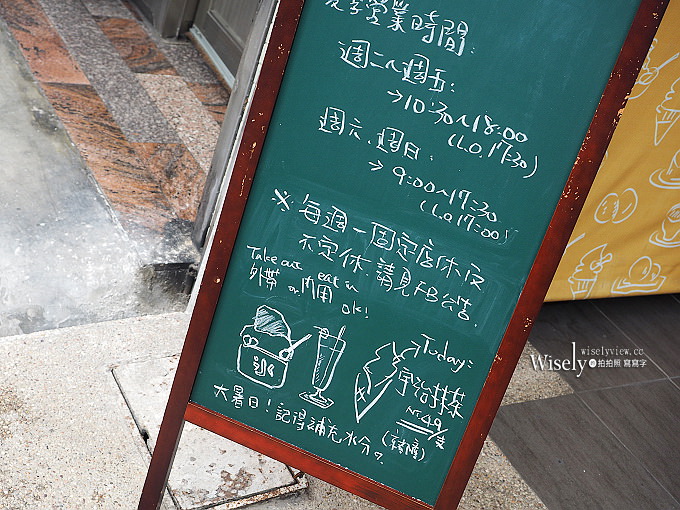 營業時間:
週二~週五:
→10:30~18:00
(L.O.17:30)
週六、週日:
→ 9:00~17:30
(L.O.17:00)
※每週一固定店休及
不定休 請見FB公告.
Take out eat in
外帶 or 內用 ok!
冰
→Today:
宇治抹茶
NT.49/支
大暑日!記得補充水分。
Wisely
wiselyview.cc
拍拍照 寫寫字